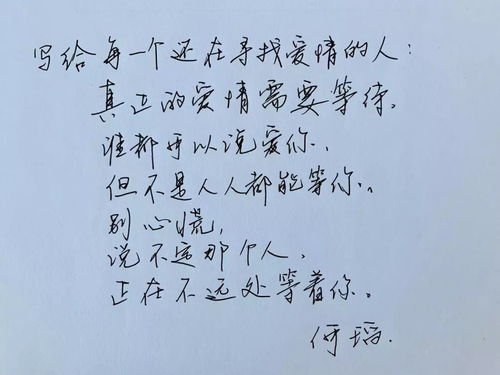 写给每一个还在寻找爱情的人：
真正的爱情需要等待。
谁都可以说爱你，
但不是人人都能等你。
别心慌，
说不定那个人，
正在不远处等着你。
何瑫.